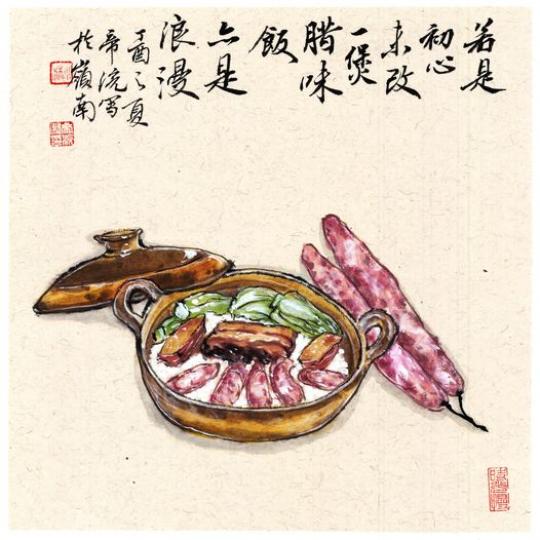 若是
初心
未改
一煲
腊味
飯
亦是
浪漫
丁酉之夏
帝浣写
於嶺南